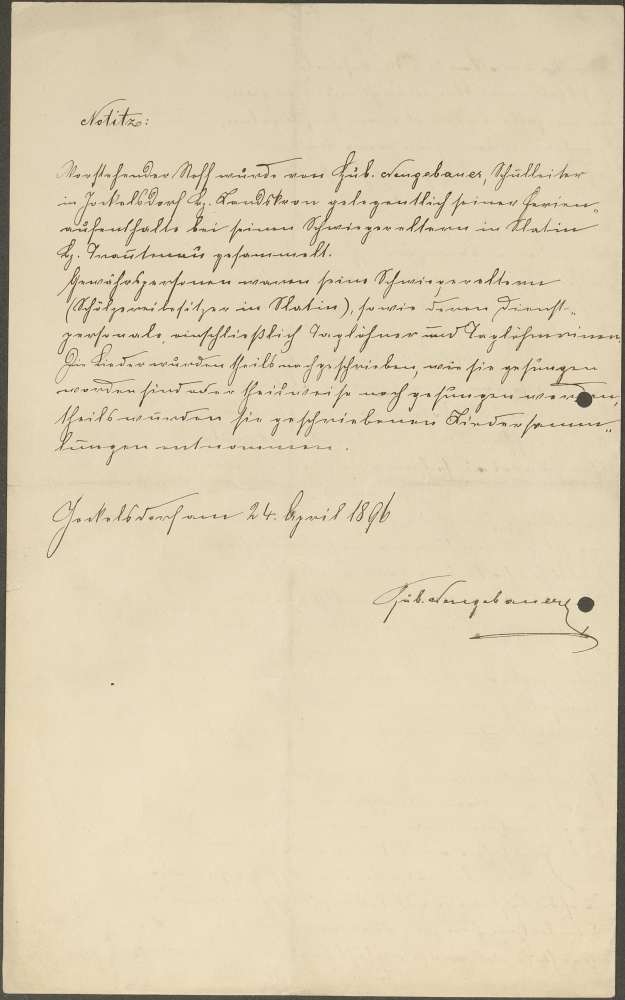 Notitz:
Vorstehender Stoff wurde von Hub. Neugebauer, Schulleiter
in Jockelsdorf Bz. Landskron gelegentlich seiner Ferien-
aufenthalte bei seinen Schwiegereltern in Slatin
Bz. Trautenau gesammelt.
Gewährspersonen waren seine Schwiegereltern
(Schölzereibesitzer in Slatin), sowie deren Dienst-
personale, einschließlich Taglöhner und Taglöhnerinnen.
Die Lieder wurden theils nachgeschrieben, wie sie gesungen
worden sind oder theilweise noch gesungen werden,
theils wurden sie geschriebenen Liedersamm-
lungen entnommen.
Jockelsdorf am 24. April 1896
Hub. Neugebauer